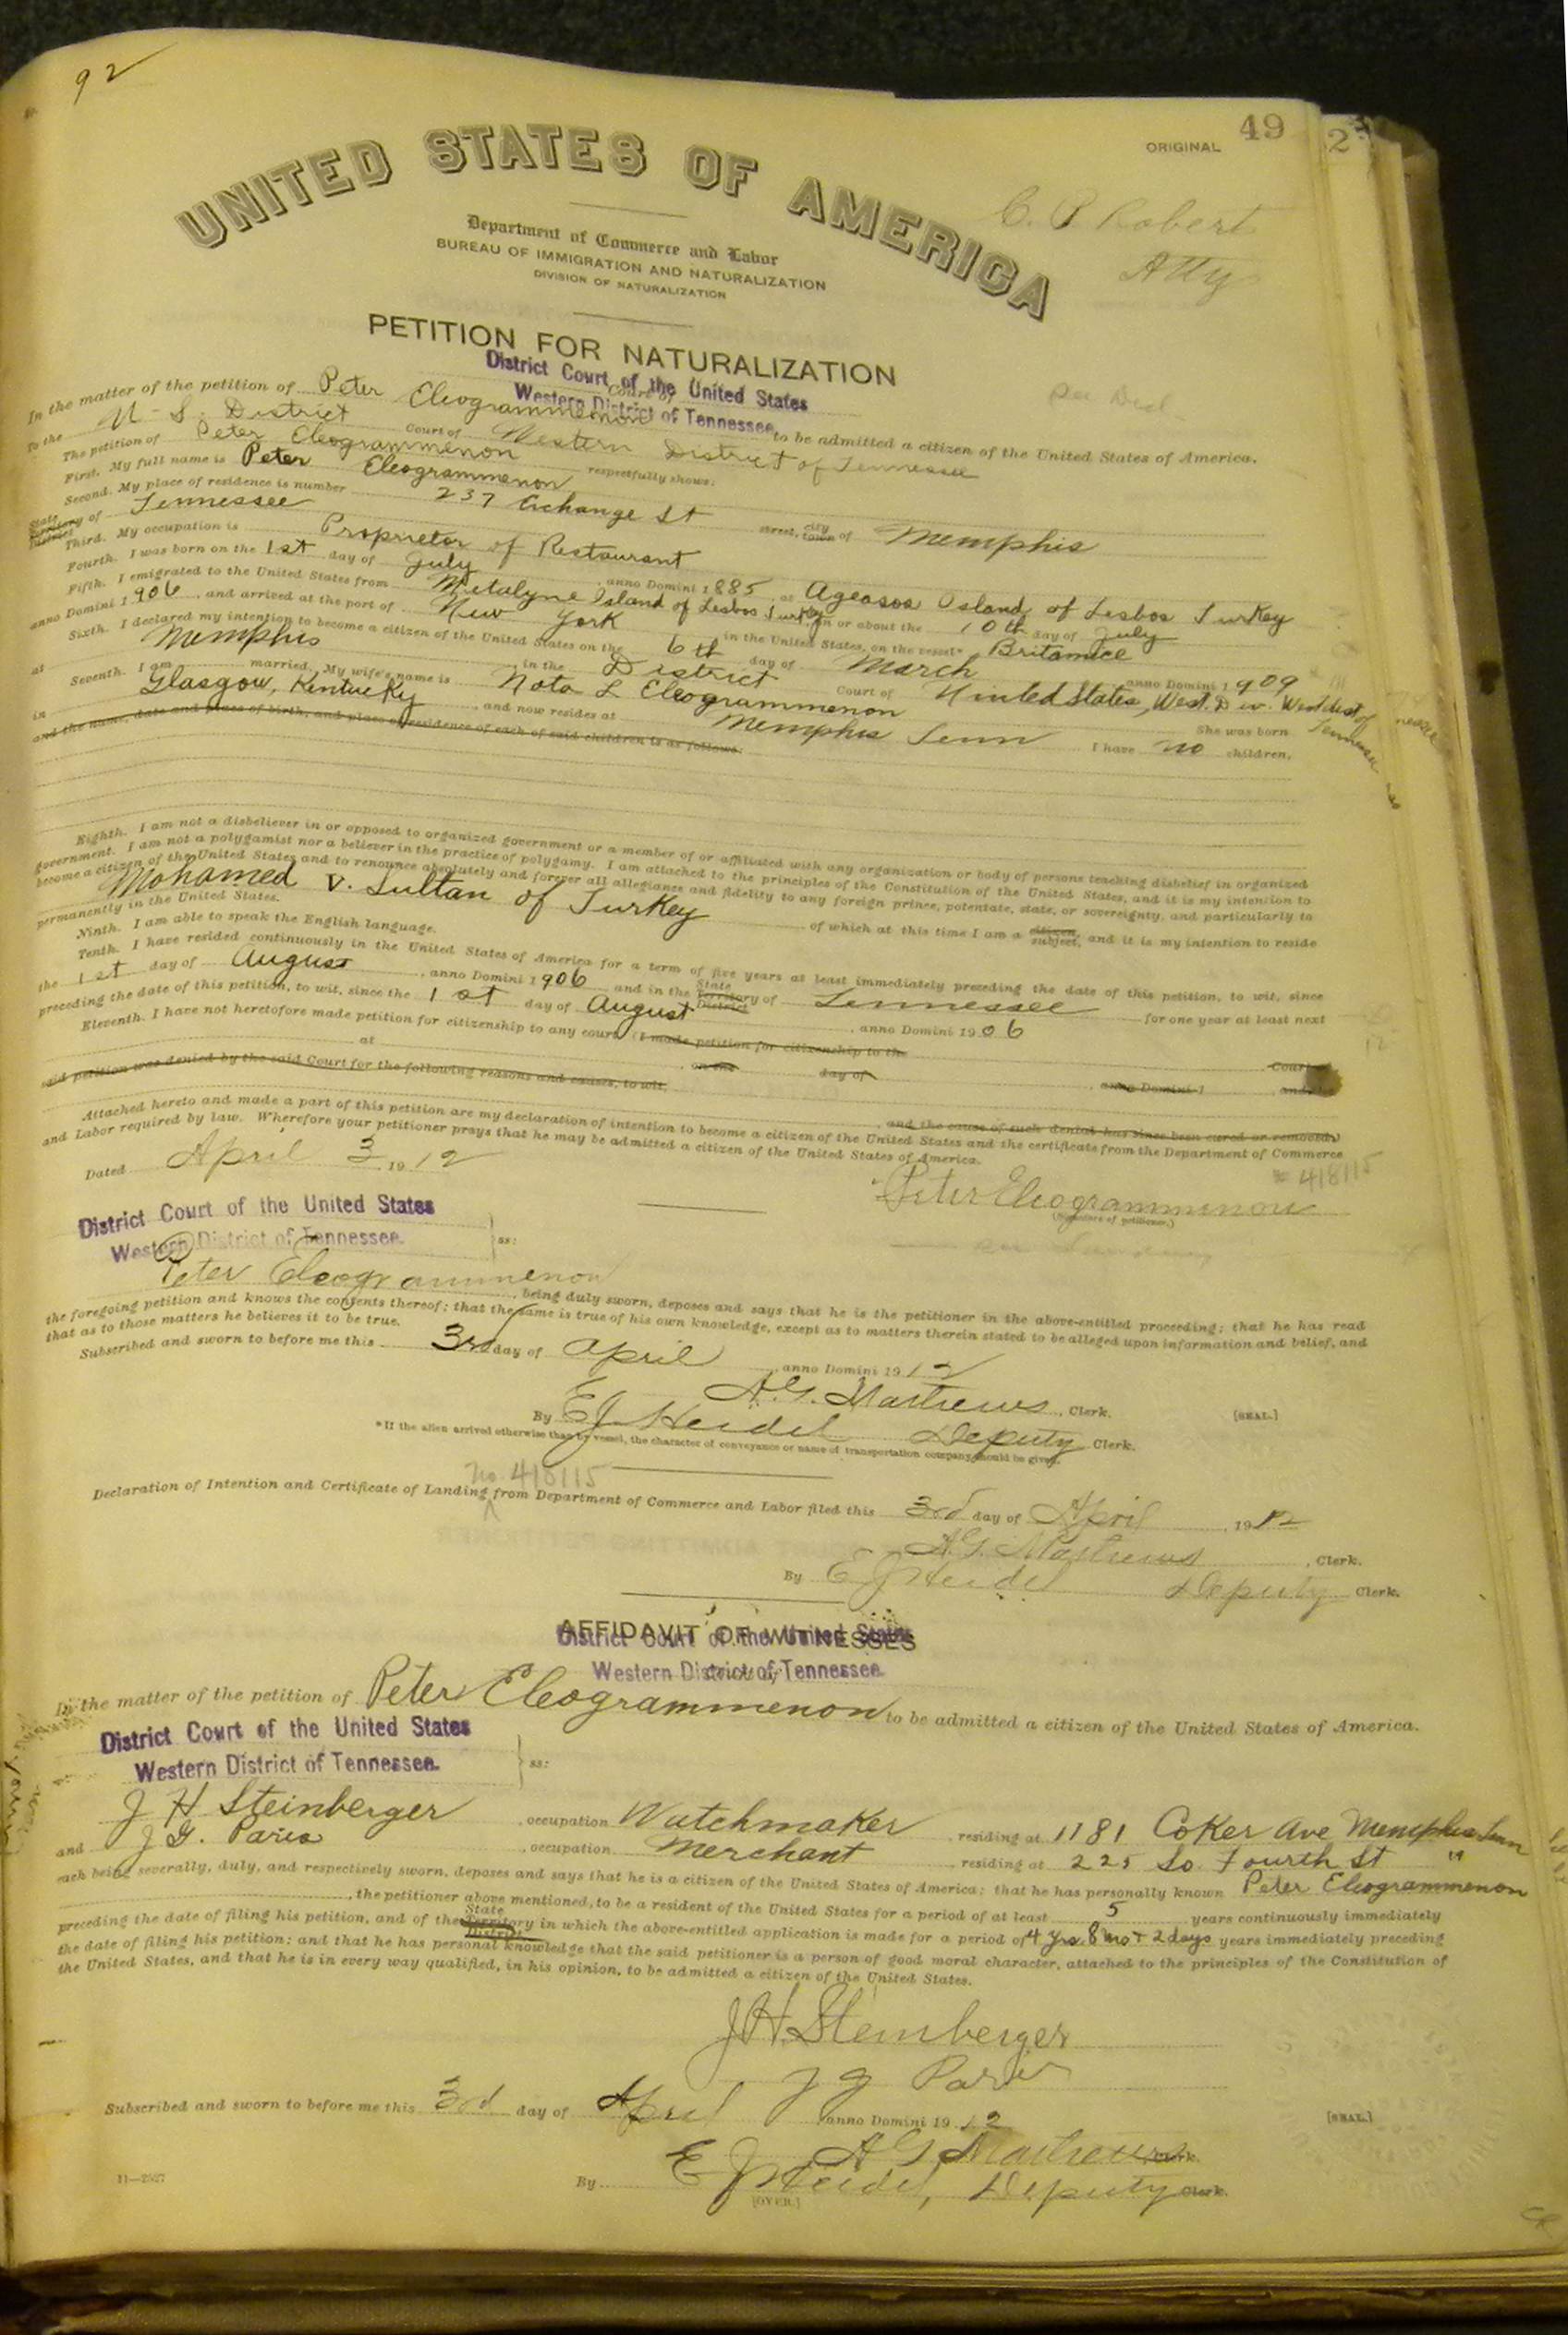 92
ORIGINAL 49
2
UNITED STATES OF AMERICA
C. P. Robert
Atty
Department of Commerce and Labor
BUREAU OF IMMIGRATION AND NATURALIZATION
DIVISION OF NATURALIZATION
PETITION FOR NATURALIZATION
District Court of the United States
Western District of Tennessee
Court of
In the matter of the petition of Peter Eleogrammenon to be admitted a citizen of the United States of America.
To the U. S. District Court of Western District of Tennessee
The petition of Peter Eleogrammenon respectfully shows:
First. My full name is Peter Eleogrammenon
Second. My place of residence is number 237 Exchange St street, city town of Memphis
State Territory District of Tennessee
Third. My occupation is Proprietor of Restaurant
Fourth. I was born on the 1st day of July, anno Domini 1885, at Ageasos Island of Lesbos Turkey
Fifth. I emigrated to the United States from Mitalyne Island of Lesbos Turkey on or about the 10th day of July
anno Domini 1906, and arrived at the port of New York in the United States, on the vessel* Britannice
Sixth. I declared my intention to become a citizen of the United States on the 6th day of March, anno Domini 1909
at Memphis in the District Court of Uninted States, West. Div. West dist of Tennessee
Seventh. I am married. My wife's name is Nota L Eleogrammenon She was born
in Glasgow, Kentucky, and now resides at Memphis Tenn I have no children,
and the name, date and place of birth, and place of residence of each of said children is as follows:
Eighth. I am not a disbeliever in or opposed to organized government or a member of or affiliated with any organization or body of persons teaching disbelief in organized
government. I am not a polygamist nor a believer in the practice of polygamy. I am attached to the principles of the Constitution of the United States, and it is my intention to
become a citizen of the United States and to renounce absolutely and forever all allegiance and fidelity to any foreign prince, potentate, state, or sovereignty, and particularly to
Mohamed V. Sultan of Turkey of which at this time I am a citizen, subject, and it is my intention to reside
permanently in the United States.
Ninth. I am able to speak the English language.
Tenth. I have resided continuously in the United States of America for a term of five years at least immediately preceding the date of this petition, to wit, since
the 1st day of August, anno Domini 1906 and in the State Territory District of Tennessee for one year at least next
preceding the date of this petition, to wit, since the 1st day of August, anno Domini 1906
Eleventh. I have not heretofore made petition for citizenship to any court. (I made petition for citizenship to the Court
at on the day of, anno Domini 1 and the
said petition was denied by the said Court for the following reasons and causes, to wit,
, and the cause of such denial has since been cured or removed.)
Attached hereto and made a part of this petition are my declaration of intention to become a citizen of the United States and the certificate from the Department of Commerce
and Labor required by law. Wherefore your petitioner prays that he may be admitted a citizen of the United States of America.
418115
Dated April 3 1912
Peter Eleogrammenon
(Signature of petitioner.)
District Court of the United States
Western District of Tennessee. ss:
Peter Eleogrammenon, being duly sworn, deposes and says that he is the petitioner in the above-entitled proceeding; that he has read
the foregoing petition and knows the contents thereof; that the same is true of his own knowledge, except as to matters therein stated to be alleged upon information and belief, and
that as to those matters he believes it to be true.
Subscribed and sworn to before me this 3rd day of April, anno Domini 1912
A.G. Matthews, Clerk.
[SEAL.]
By E J Heidel Deputy Clerk.
*If the alien arrived otherwise than by vessel, the character of conveyance or name of transportation company should be given.
no 418115
Declaration of Intention and Certificate of Landing from Department of Commerce and Labor filed this 3rd day of April, 1912
A.G. Matthews, Clerk.
By E J Heidel Deputy Clerk.
AFFIDAVIT OF WITNESSES
District Court of the United States
Western District of Tennessee.
Court of
In the matter of the petition of Peter Eleogrammenon to be admitted a citizen of the United States of America.
District Court of the United States
Western District of Tennessee. ss:
J H Steinberger, occupation Watchmaker, residing at 1181 Coker Ave Memphis Tenn
and J G. Paris, occupation Merchant, residing at 225 So. Fourth St "
each being severally, duly, and respectively sworn, deposes and says that he is a citizen of the United States of America; that he has personally known Peter Eleogrammenon
, the petitioner above mentioned, to be a resident of the United States for a period of at least 5 years continuously immediately
preceding the date of filing his petition, and of the State Territory District in which the above-entitled application is made for a period of 4 yrs 8 mo + 2 days years immediately preceding
the date of filing his petition; and that he has personal knowledge that the said petitioner is a person of good moral character, attached to the principles of the Constitution of
the United States, and that he is in every way qualified, in his opinion, to be admitted a citizen of the United States.
J H Steinberger
J G Paris
Subscribed and sworn to before me this 3rd day of April, anno Domini 1912
[SEAL.]
A G Matthews Clerk.
By E J Heidel, Deputy Clerk.
11—2527
[OVER.]